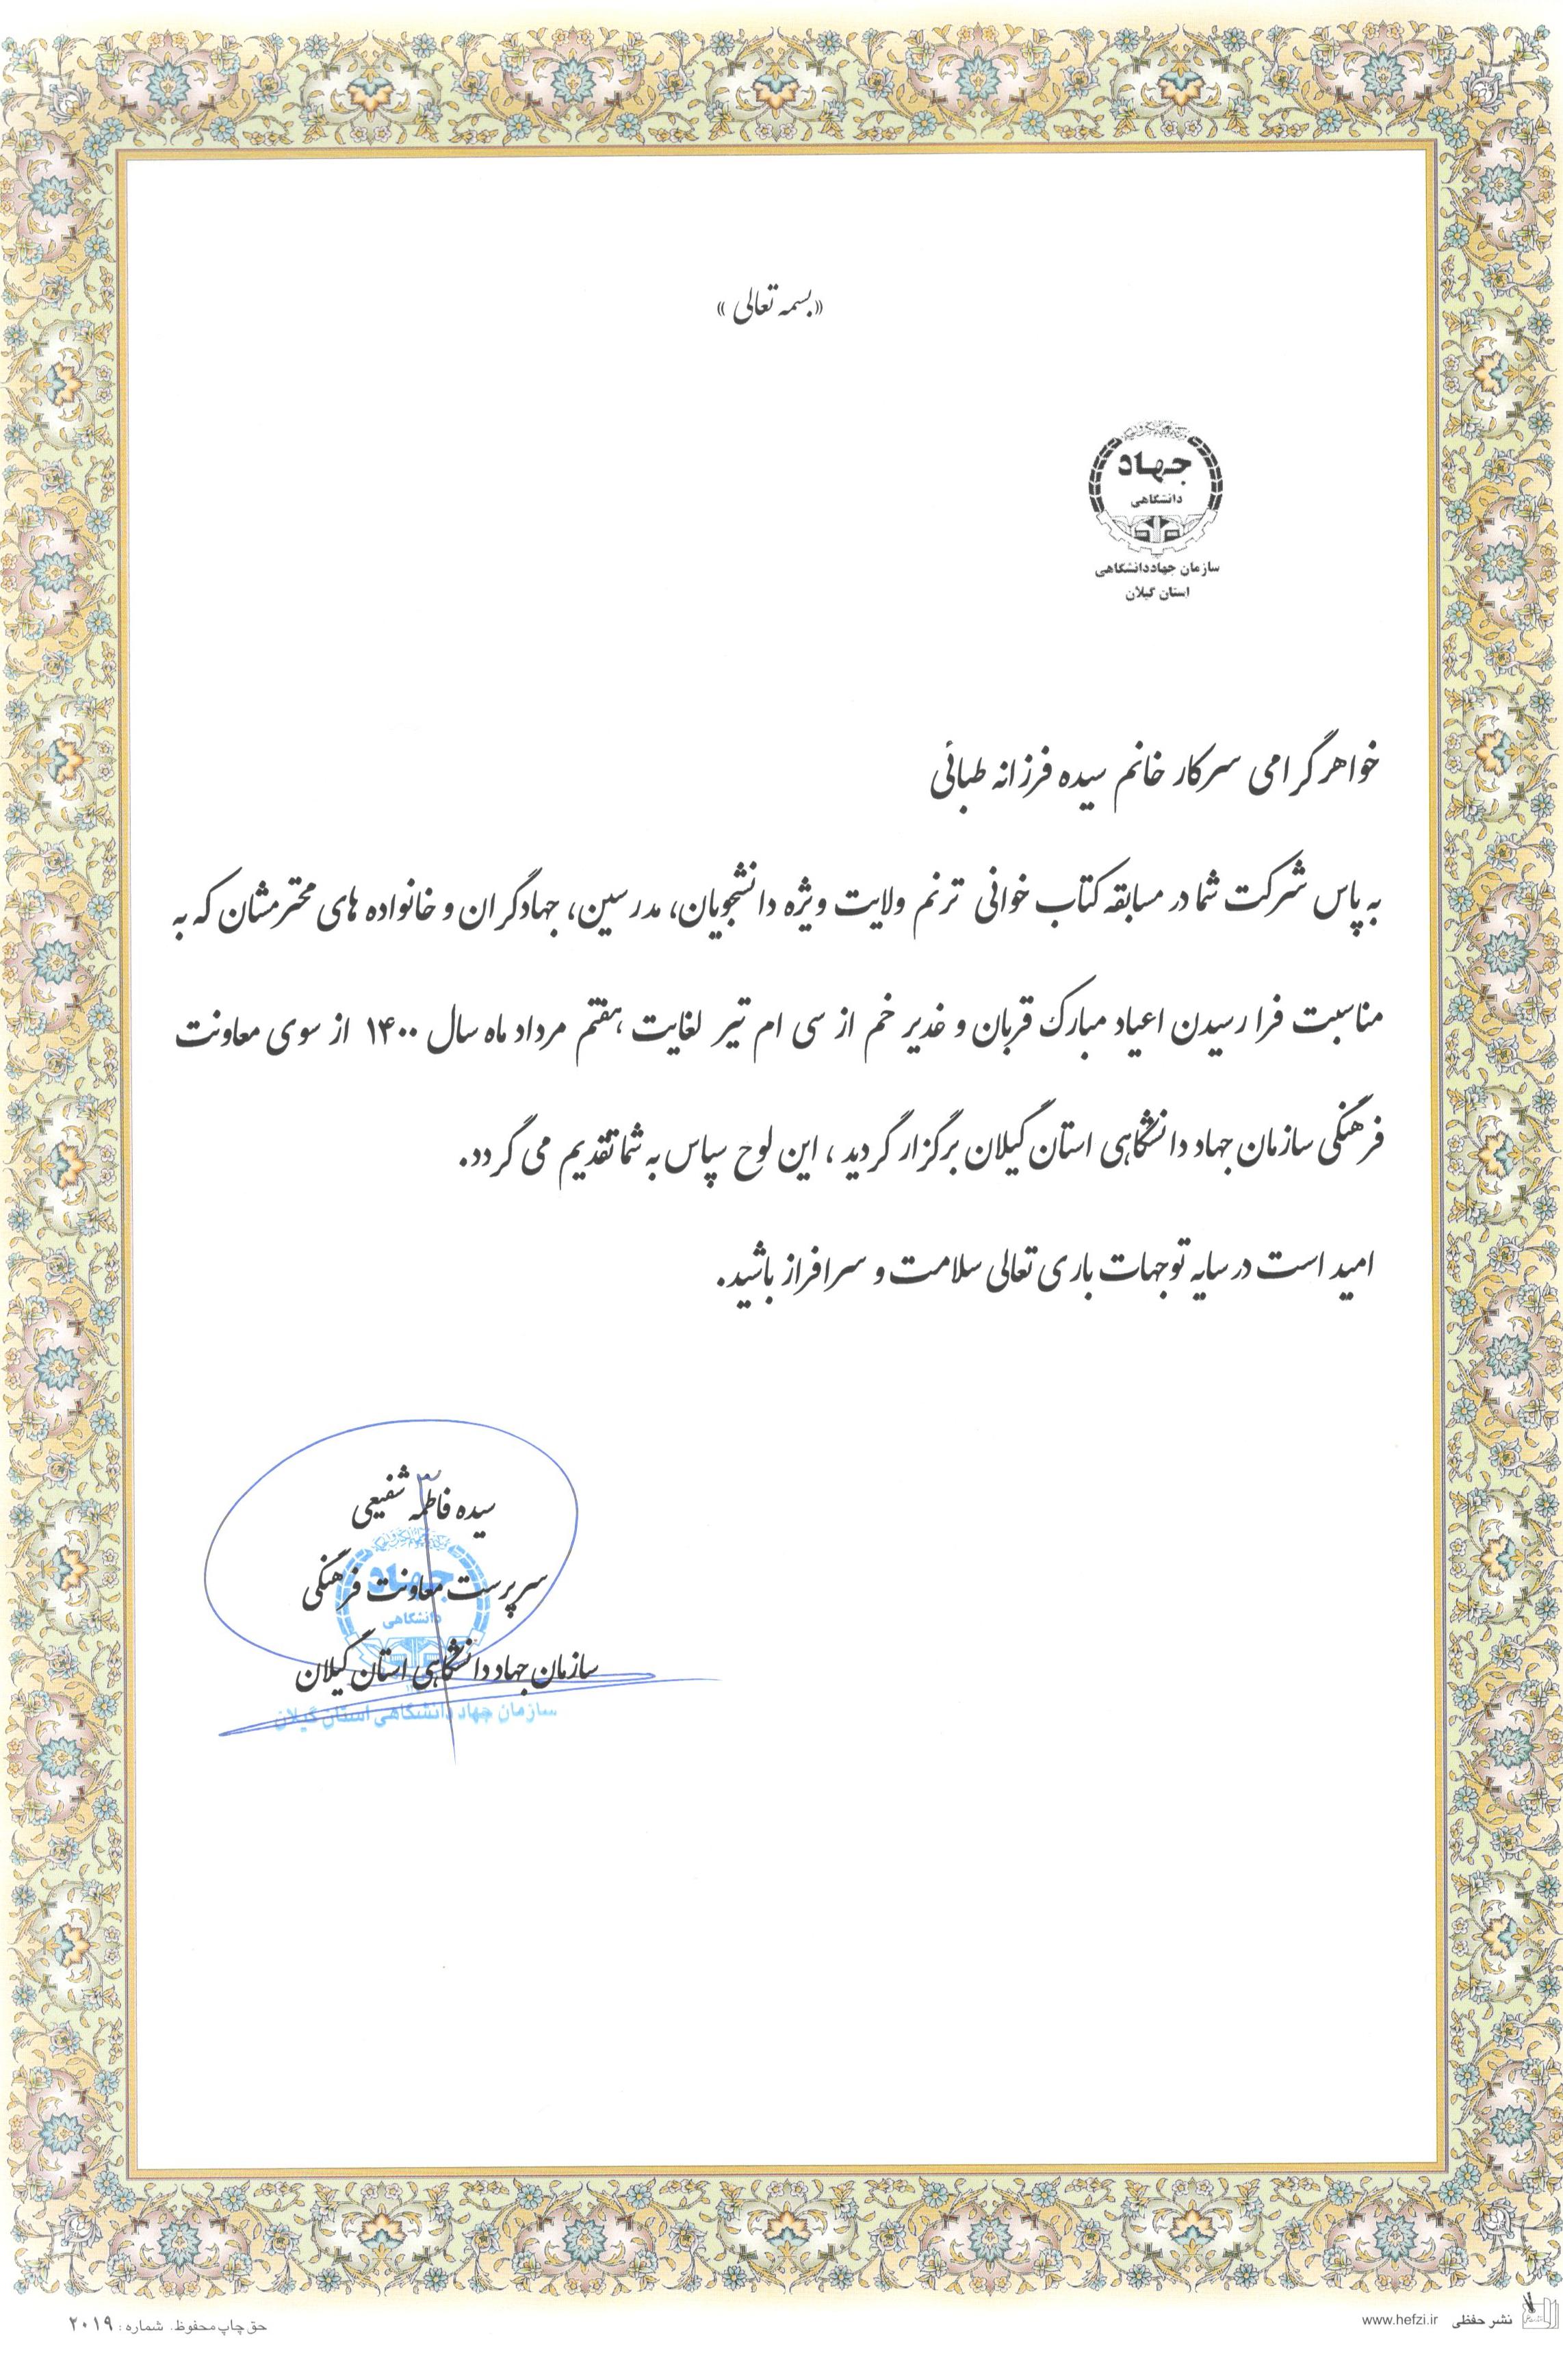 «بسمه تعالی»
جهاد
دانشگاهی
سازمان جهاددانشگاهی
استان گیلان
خواهر گرامی سرکار خانم سیده فرزانه طبائی
به پاس شرکت شما در مسابقه کتاب خوانی ترنم ولایت ویژه دانشجویان، مدرسین، جهادگران و خانواده های محترمشان که به
مناسبت فرا رسیدن اعیاد مبارک قربان و غدیر خم از سی ام تیر لغایت هفتم مرداد ماه سال ۱۴۰۰ از سوی معاونت
فرهنگی سازمان جهاد دانشگاهی استان گیلان برگزار گردید، این لوح سپاس به شما تقدیم می گردد.
امید است در سایه توجهات باری تعالی سلامت و سرافراز باشید.
سیده فاطمه شفیعی
سرپرست معاونت فرهنگی
سازمان جهاد دانشگاهی استان گیلان
جهاد
دانشگاهی
سازمان جهاد دانشگاهی استان گیلان
نشر حفظی www.hefzi.ir
حق چاپ محفوظ. شماره: ۲۰۱۹